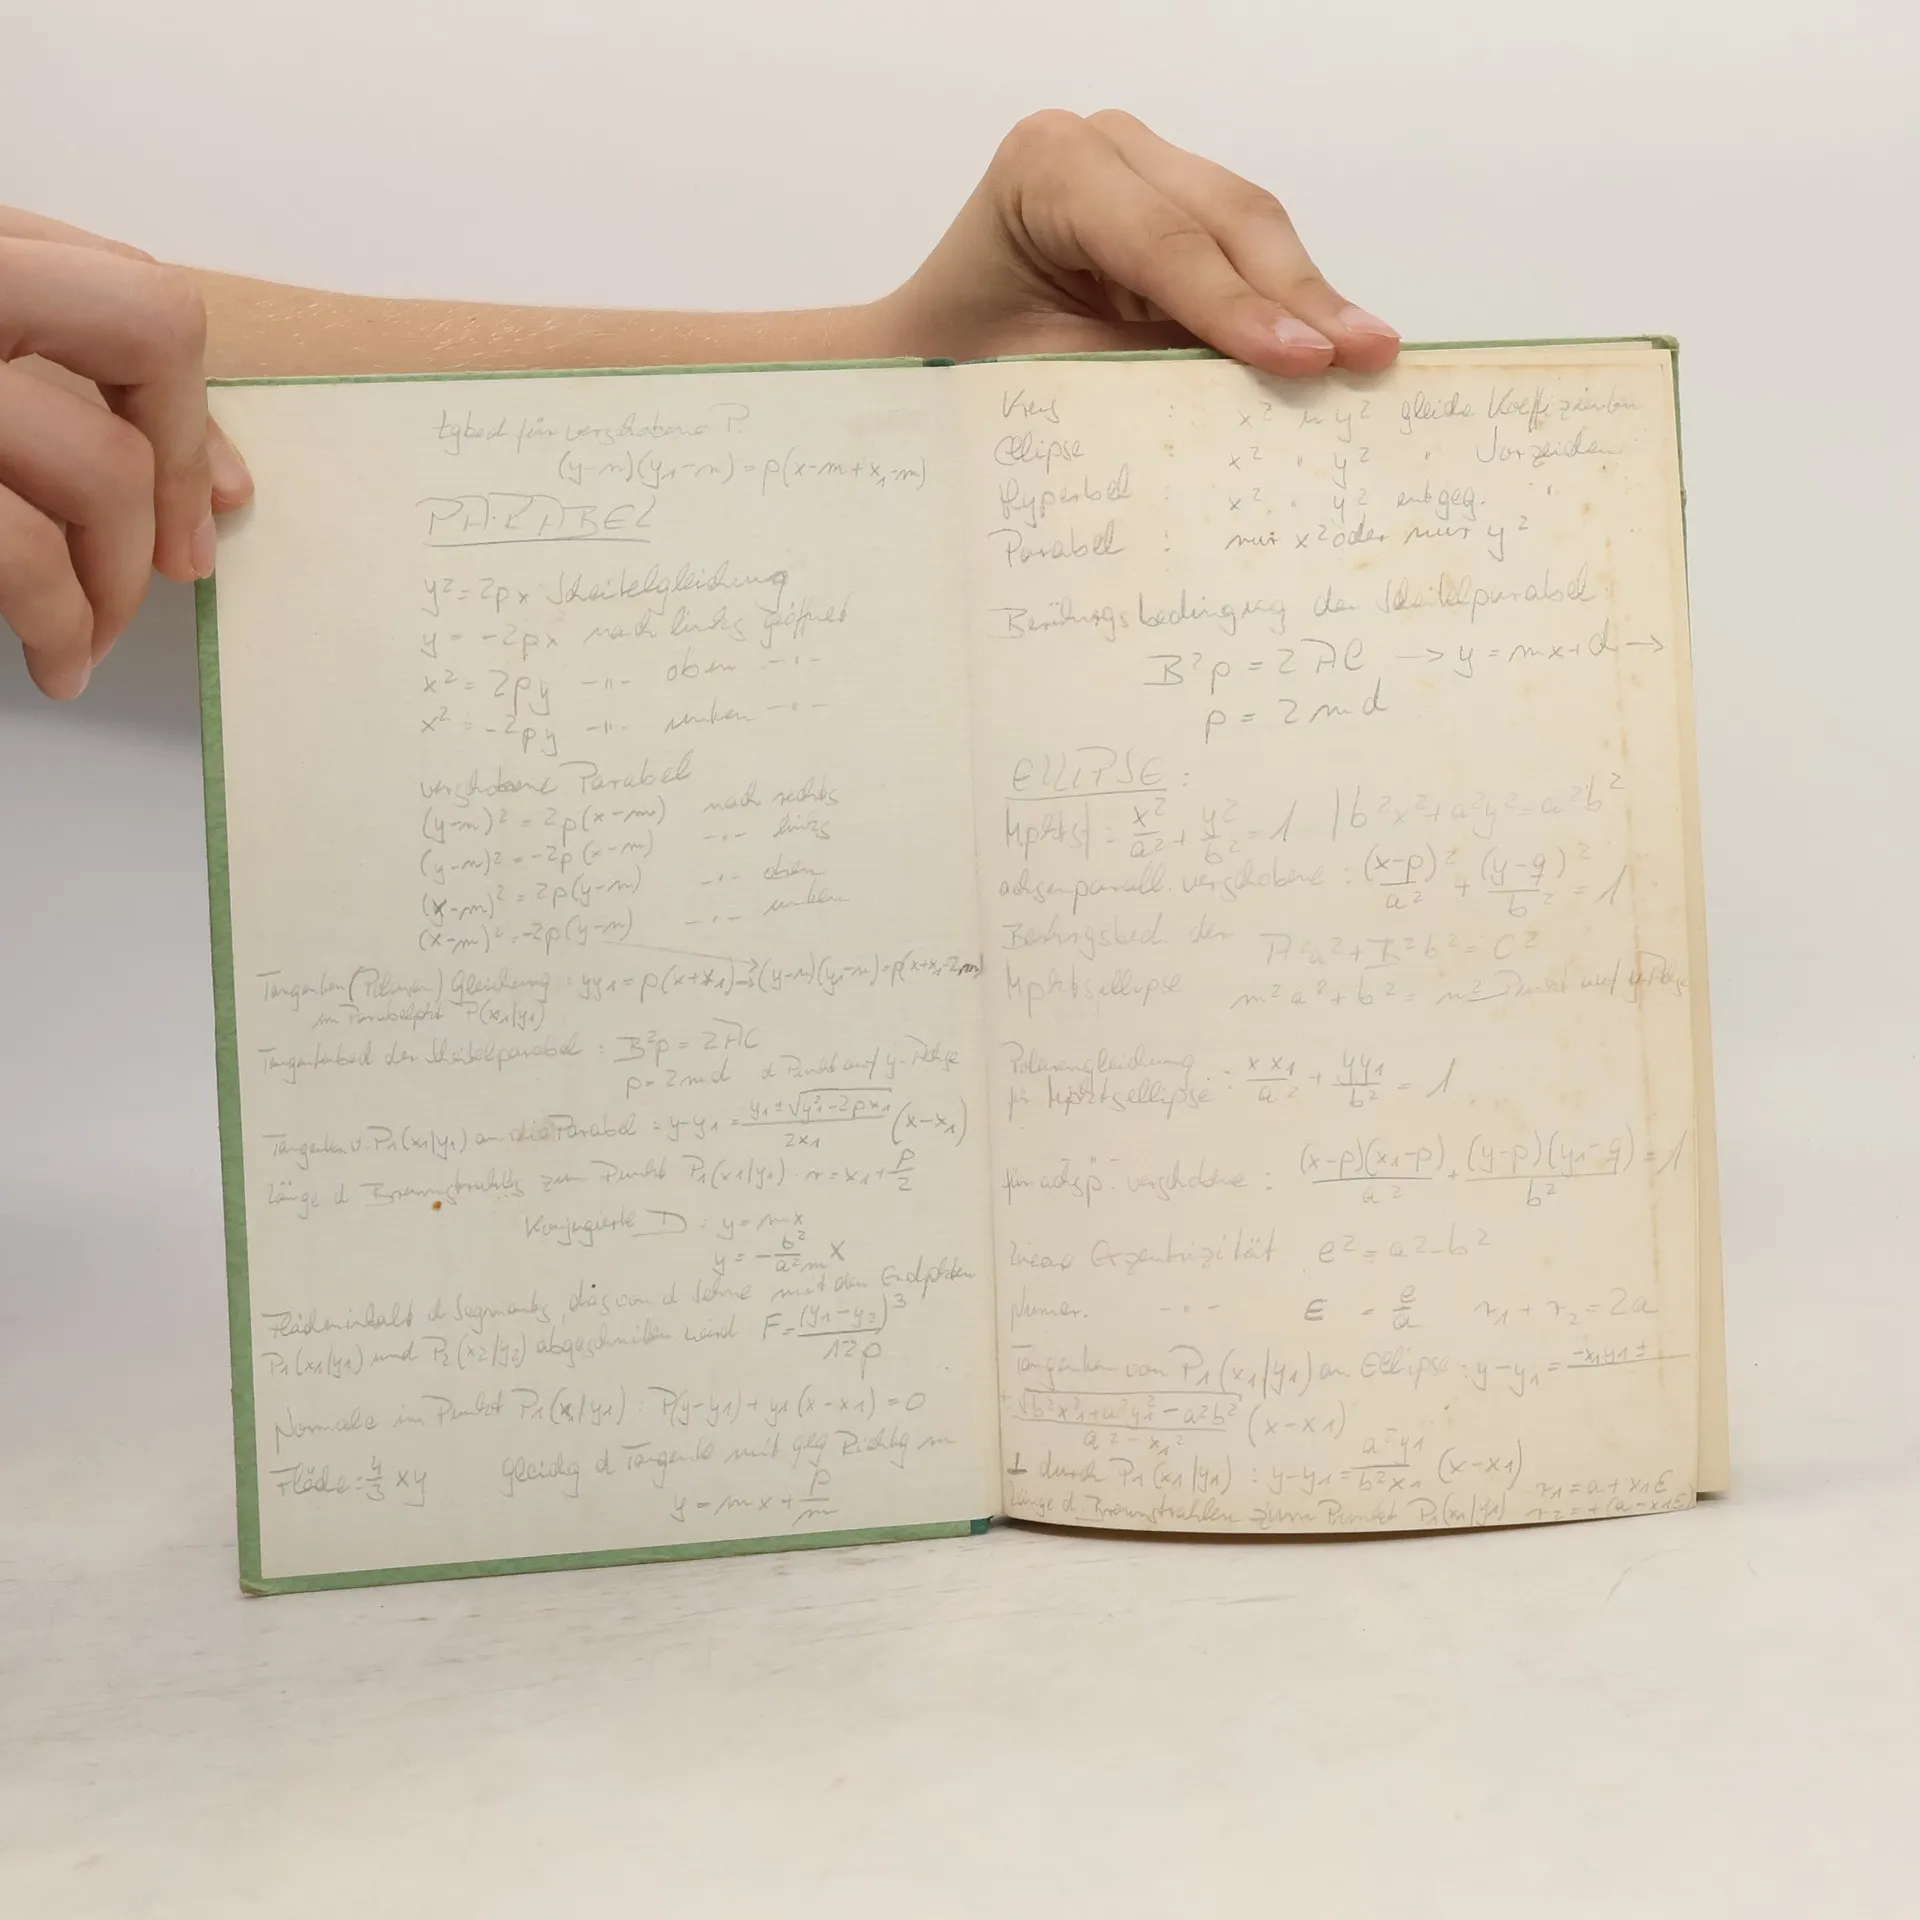 tgbed für verschobene P.
(y-n)(y₁-n) = p(x-m+x₁-m)
PARABEL
y² = 2px Scheitelgleichung
y = -2px nach links geöffnet
x² = 2py -"- oben -"-
x² = -2py -"- unten -"-
verschobene Parabel
(y-n)² = 2p(x-m) nach rechts
(y-n)² = -2p(x-m) -"- links
(x-m)² = 2p(y-n) -"- oben
(x-m)² = -2p(y-n) -"- unten
Tangenten (Polaren) Gleichung : yy₁ = p(x+x₁) → (y-n)(y₁-n) = p(x+x₁-2m)
im Parabelpkt P(x₁/y₁)
Tangentenbed der Scheitelparabel : B²p = 2AC
p = 2md d Punkt auf y-Achse
Tangenten v. P₁(x₁/y₁) an die Parabel : y-y₁ = (y₁ ± √(y₁²-2px₁))/(2x₁) (x-x₁)
Länge d Brennstrahls zum Punkt P₁(x₁/y₁) . r = x₁ + p/2
Konjugierte D : y = mx
y = -b²/(a²m) x
Flächeninhalt d Segments, das von d Sehne mit den Endpkten
P₁(x₁/y₁) und P₂(x₂/y₂) abgeschnitten wird F = (y₁-y₂)³/(12p)
Normale im Punkt P₁(x₁/y₁) : P(y-y₁)+y₁(x-x₁) = 0
Fläche = 4/3 xy gleichg d Tangente mit geg Richtg m
y = mx + p/m
Kreis : x² u y² gleiche Koeffizienten
Ellipse x² " y² " Vorzeichen
Hyperbel : x² " y² entgeg. "
Parabel : nur x² oder nur y²
Berührungsbedingung der Scheitelparabel
B²p = 2AC → y = mx+d →
p = 2md
ELLIPSE :
Mpktsf : x²/a² + y²/b² = 1 | b²x²+a²y² = a²b²
achsenparall. verschobene : (x-p)²/a² + (y-q)²/b² = 1
Berhrgsbed. der A²a²+B²b² = C²
Mpktsellipse m²a²+b² = n² Punkt auf y-Achse
Polarengleichung
für Mpktsellipse : xx₁/a² + yy₁/b² = 1
für achsp. verschobene : (x-p)(x₁-p)/a² + (y-p)(y₁-q)/b² = 1
lineare Exzentrizität e² = a²-b²
Numer. -"- E = e/a r₁+r₂ = 2a
Tangenten von P₁(x₁/y₁) an Ellipse : y-y₁ = -x₁y₁ ±
√(b²x₁²+a²y₁²-a²b²)/(a²-x₁²) (x-x₁)
⊥ durch P₁(x₁/y₁) : y-y₁ = a²y₁/(b²x₁) (x-x₁) r₁ = a+x₁E
Länge d. Brennstrahlen zum Punkt P₁(x₁/y₁) r₂ = +(a-x₁E)